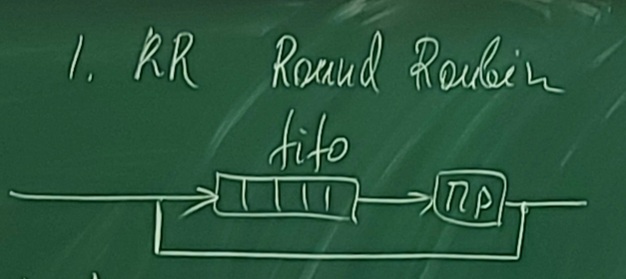 1. RR Round Roubin
fifo
ПР